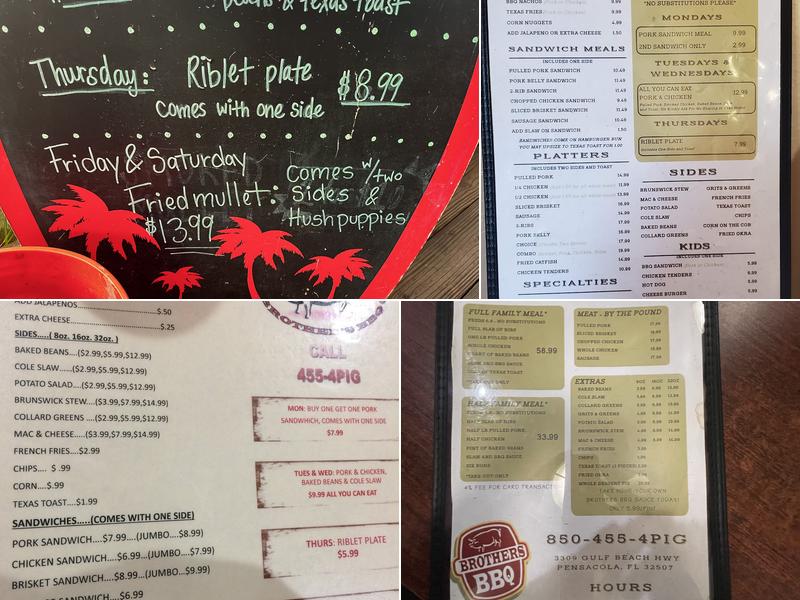 & Texas Toast
Thursday: Riblet plate $8.99
comes with one side
Friday & Saturday
Fried mullet:
$13.99
Comes w/two
Sides &
Hushpuppies
BBQ NACHOS 9.99
TEXAS FRIES 9.99
CORN NUGGETS 4.99
ADD JALAPENO OR EXTRA CHEESE 1.50
SANDWICH MEALS
INCLUDES ONE SIDE
PULLED PORK SANDWICH 10.49
PORK BELLY SANDWICH 11.49
2-RIB SANDWICH 11.49
CHOPPED CHICKEN SANDWICH 9.49
SLICED BRISKET SANDWICH 11.49
SAUSAGE SANDWICH 10.49
ADD SLAW ON SANDWICH 1.50
SANDWICHES COME ON HAMBURGER BUN
YOU MAY UPSIZE TO TEXAS TOAST FOR 1.00
PLATTERS
INCLUDES TWO SIDES AND TOAST
PULLED PORK 14.99
1/4 CHICKEN 11.99
1/2 CHICKEN 13.99
SLICED BRISKET 16.99
SAUSAGE 14.99
3-RIBS 17.99
PORK BELLY 16.99
CHOICE
COMBO
FRIED CATFISH 14.99
CHICKEN TENDERS 10.99
SPECIALTIES
*NO SUBSTITUTIONS PLEASE*
MONDAYS
PORK SANDWICH MEAL 9.99
2ND SANDWICH ONLY 2.99
TUESDAYS &
WEDNESDAYS
ALL YOU CAN EAT
PORK & CHICKEN 12.99
THURSDAYS
RIBLET PLATE 7.99
Includes One Side and Toast
SIDES
BRUNSWICK STEW GRITS & GREENS
MAC & CHEESE FRENCH FRIES
POTATO SALAD TEXAS TOAST
COLE SLAW CHIPS
BAKED BEANS CORN ON THE COB
COLLARD GREENS FRIED OKRA
KIDS
INCLUDES ONE SIDE
BBQ SANDWICH 5.99
CHICKEN TENDERS 6.99
HOT DOG 5.99
CHEESE BURGER 6.99
ADD JALAPENOS.....$.50
EXTRA CHEESE.....$.25
SIDES.....( 8oz. 16oz. 32oz. )
BAKED BEANS....($2.99,$5.99,$12.99)
COLE SLAW......($2.99,$5.99,$12.99)
POTATO SALAD....($2.99,$5.99,$12.99)
BRUNSWICK STEW....($3.99,$7.99,$14.99)
COLLARD GREENS ....($2.99,$5.99,$12.99)
MAC & CHEESE.....($3.99,$7.99,$14.99)
FRENCH FRIES....$2.99
CHIPS.... $ .99
CORN....$.99
TEXAS TOAST....$1.99
SANDWICHES.....(COMES WITH ONE SIDE)
PORK SANDWICH....$7.99....(JUMBO....$8.99)
CHICKEN SANDWICH....$6.99...(JUMBO...$7.99)
BRISKET SANDWICH....$8.99...(JUMBO...$9.99)
SANDWICH....$6.99
BROTHER'S BBQ
CALL
455-4PIG
MON: BUY ONE GET ONE PORK
SANDWHICH, COMES WITH ONE SIDE
$7.99
TUES & WED: PORK & CHICKEN,
BAKED BEANS & COLE SLAW
$9.99 ALL YOU CAN EAT
THURS: RIBLET PLATE
$5.99
FULL FAMILY MEAL*
FEEDS 6-8 - NO SUBSTITUTIONS
FULL SLAB OF RIBS
ONE LB PULLED PORK
WHOLE CHICKEN
QUART OF BAKED BEANS
SLAW AND BBQ SAUCE
OF TEXAS TOAST
58.99
HALF FAMILY MEAL*
NO SUBSTITUTIONS
HALF SLAB OF RIBS
HALF LB PULLED PORK
HALF CHICKEN
PINT OF BAKED BEANS
SLAW AND BBQ SAUCE
SIX BUNS
*TAKE OUT ONLY
33.99
4% FEE FOR CARD TRANSACTIONS
MEAT - BY THE POUND
PULLED PORK 17.99
SLICED BRISKET 19.99
CHOPPED CHICKEN 17.99
WHOLE CHICKEN 16.99
SAUSAGE 17.99
EXTRAS 8OZ 16OZ 32OZ
BAKED BEANS
COLE SLAW
COLLARD GREENS
GRITS & GREENS
POTATO SALAD
BRUNSWICK STEW
MAC & CHEESE
FRENCH FRIES
CHIPS
TEXAS TOAST
FRIED OKRA
WHOLE DESSERT PIE
TAKE HOME YOUR OWN
BROTHERS BBQ SAUCE TODAY!
ONLY 5.99/PINT
BROTHERS
BBQ
850-455-4PIG
3309 GULF BEACH HWY
PENSACOLA, FL 32507
HOURS